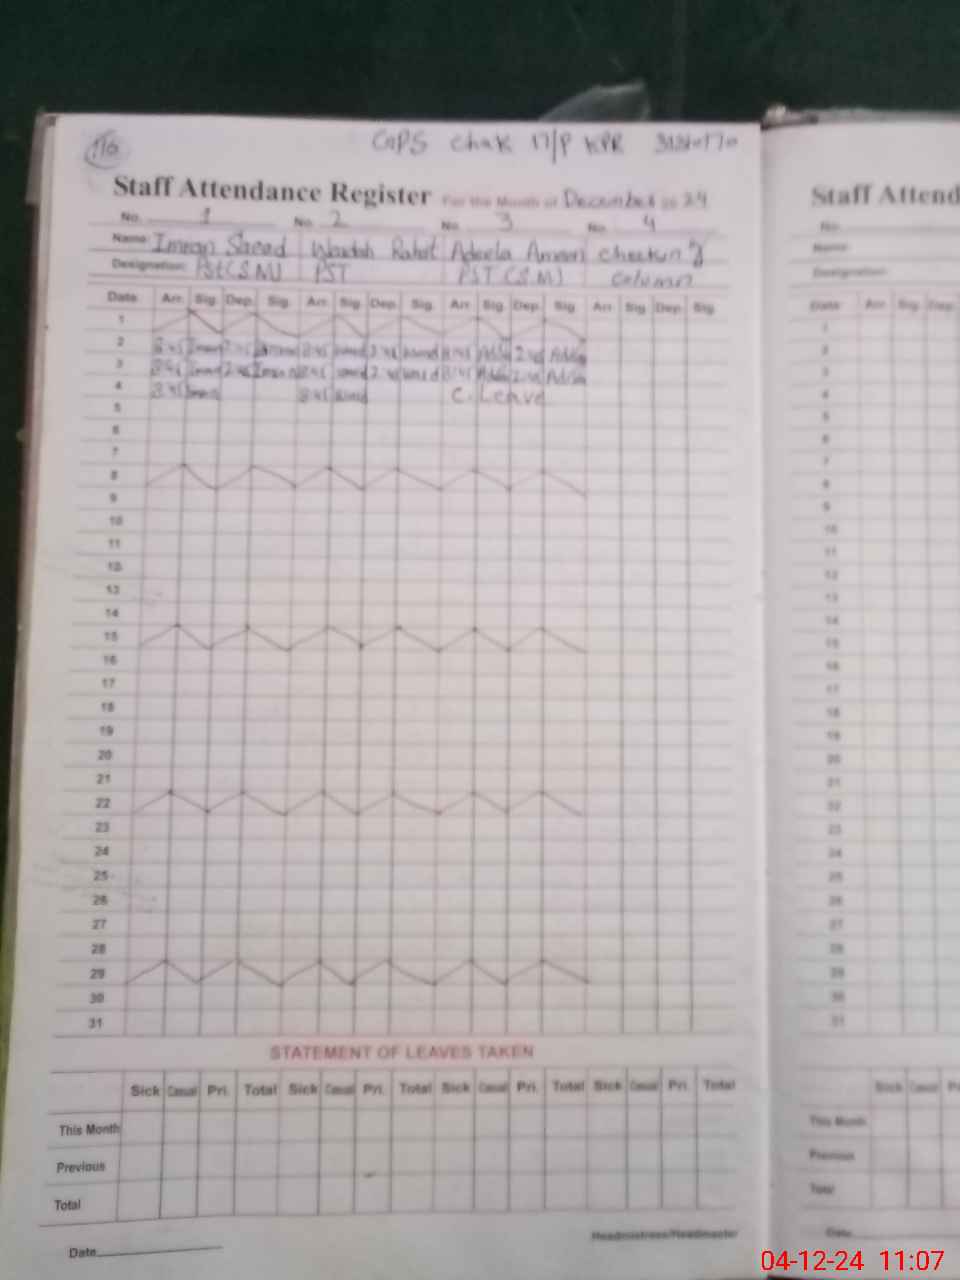 116
GGPS Chak 17/P KPR
Staff Attendance Register For the Month of December 20 24 Staff Attend
No. 1 No. 2 No. 3 No. 4 No.
Name: Imran Saeed Rahat Adeela Checking Name:
Designation: PST(S.M) PST PST (S.M) column Designation:
Date Arr. Sig. Dep. Sig. Arr. Sig. Dep. Sig. Arr. Sig. Dep. Sig. Arr. Sig. Dep. Sig. Date Arr. Sig. Dep.
1 1
2 8:45 2:45 8:45 2:45 8:45 2:45 2
3 8:45 2:45 Imran 8:45 2:45 8:45 2:45 3
4 8:45 8:45 C. Leave 4
5 5
6 6
7 7
8 8
9 9
10 10
11 11
12 12
13 13
14 14
15 15
16 16
17 17
18 18
19 19
20 20
21 21
22 22
23 23
24 24
25 25
26 26
27 27
28 28
29 29
30 30
31 31
STATEMENT OF LEAVES TAKEN
Sick Casual Pri. Total Sick Casual Pri. Total Sick Casual Pri. Total Sick Casual Pri. Total Sick Casual
This Month This Month
Previous Previous
Total Total
Date Headmistress/Headmaster Date
04-12-24 11:07